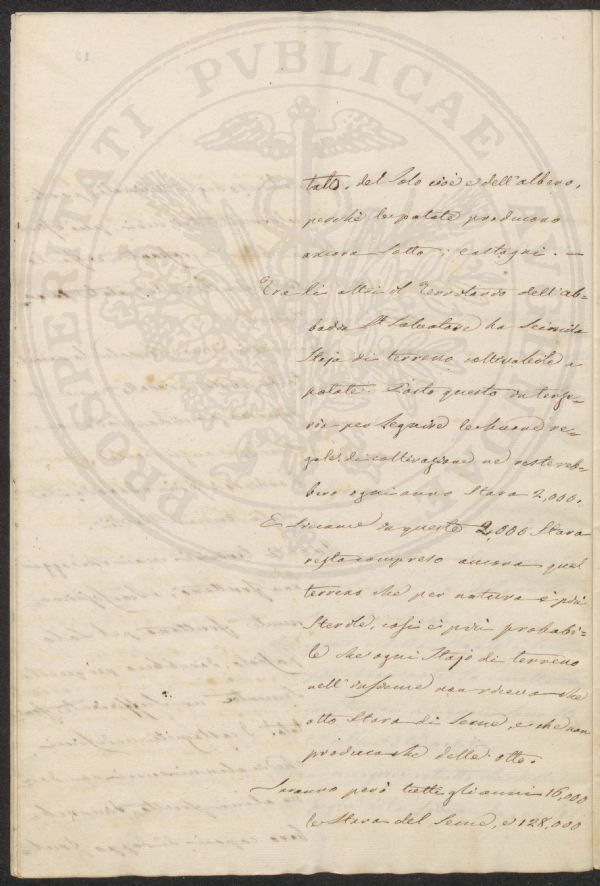 PROSPERITATI PVBLICAE AVGENDAE
tato, del Solo cioè e dell'albero,
perchè le patate producono
ancora Sotto i castagni. —
Tra li altri il Territorio dell'Ab=
badia St Salvatore ha Seimila
Staja di terreno coltivabile a
patate. Posto questo in terze=
ria per Seguire le buone re=
gole di coltivazione ne resterreb=
bero ogni anno Stara 2,000.
E siccome in queste 2,000 Stara
resta compreso ancora quel
terreno che per natura è più
Sterile, così è più probabi=
le che ogni Stajo di terreno
nell'insieme non riceva che
otto Stara di Seme, e che non
produca che delle otto.
Saranno però tutti gli anni 16,000
le Stara del Seme, e 128,000